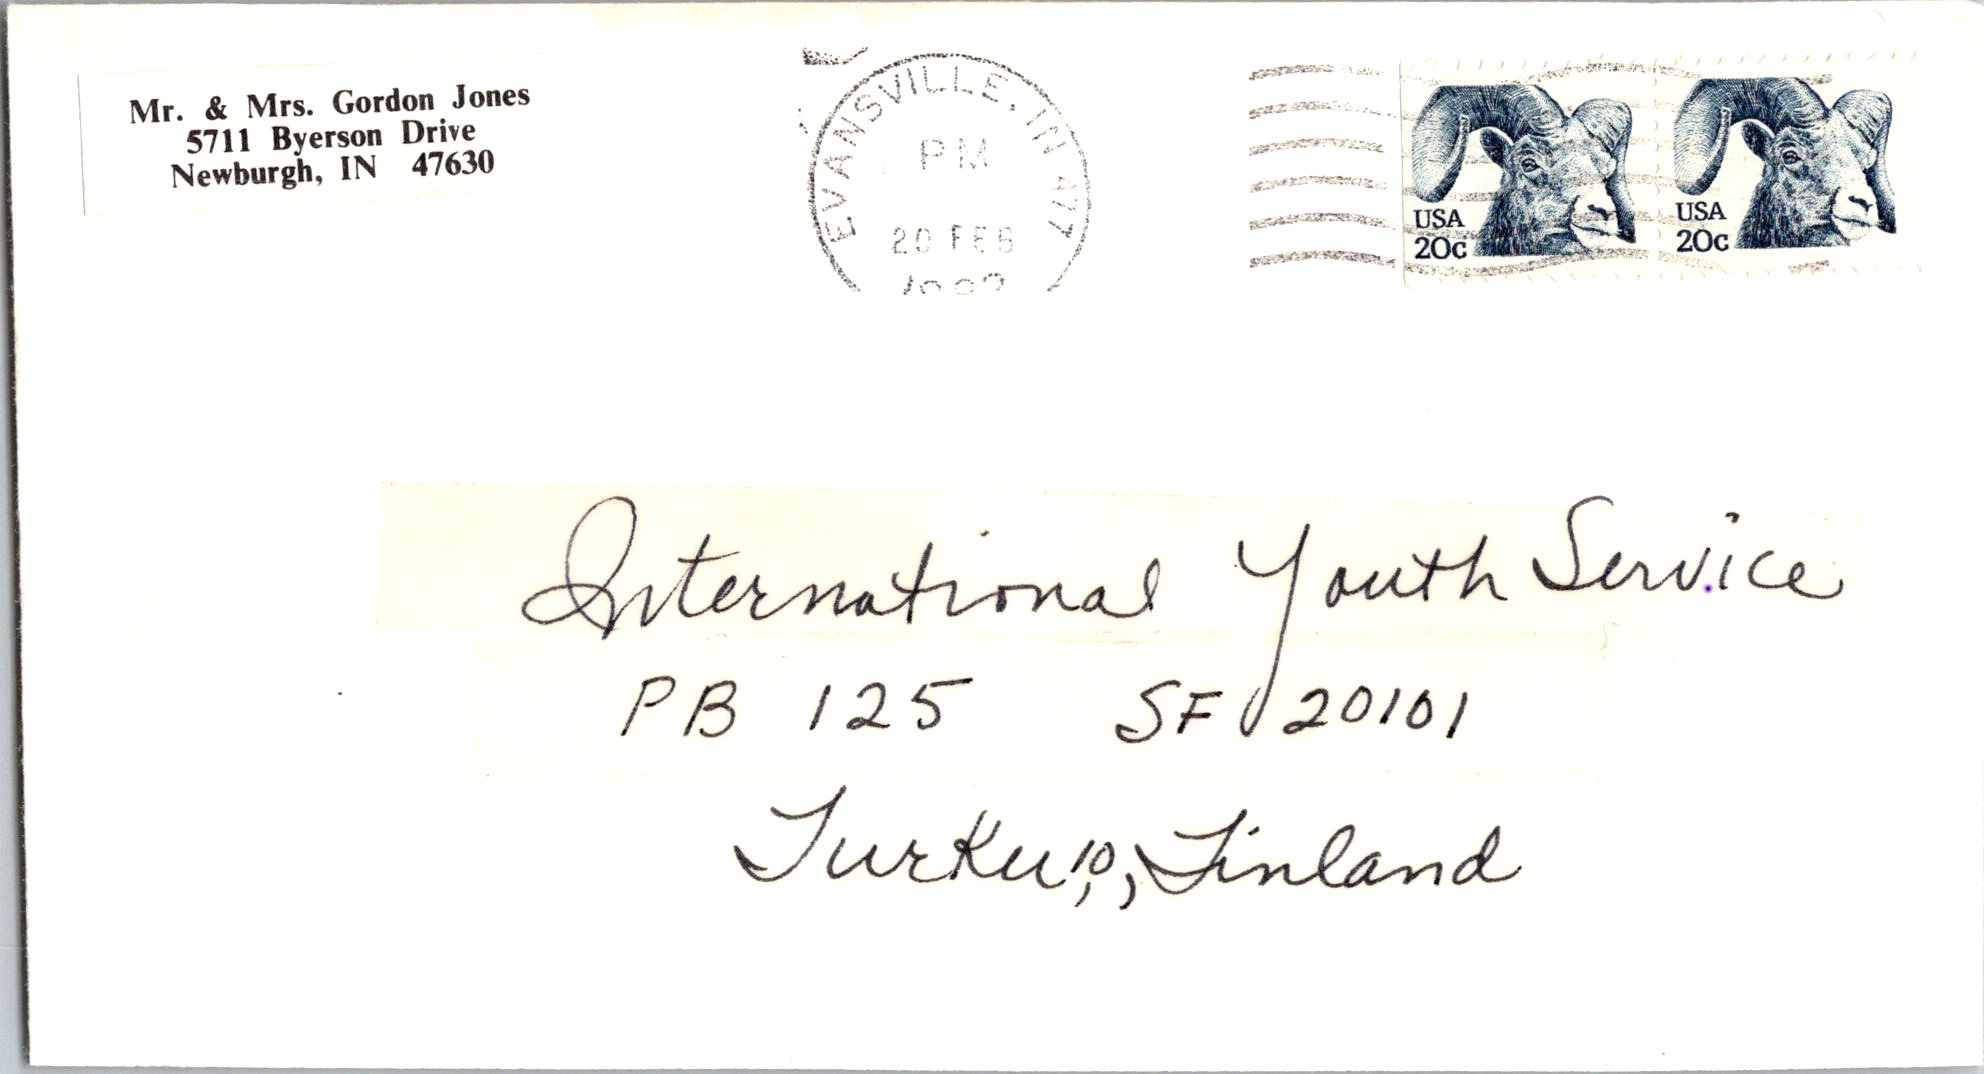 Mr. & Mrs. Gordon Jones
5711 Byerson Drive
Newburgh, IN 47630
EVANSVILLE, IN 477
PM
20 FEB
USA
20c
USA
20c
International Youth Service
PB 125 SF 20101
Turku 10, Finland